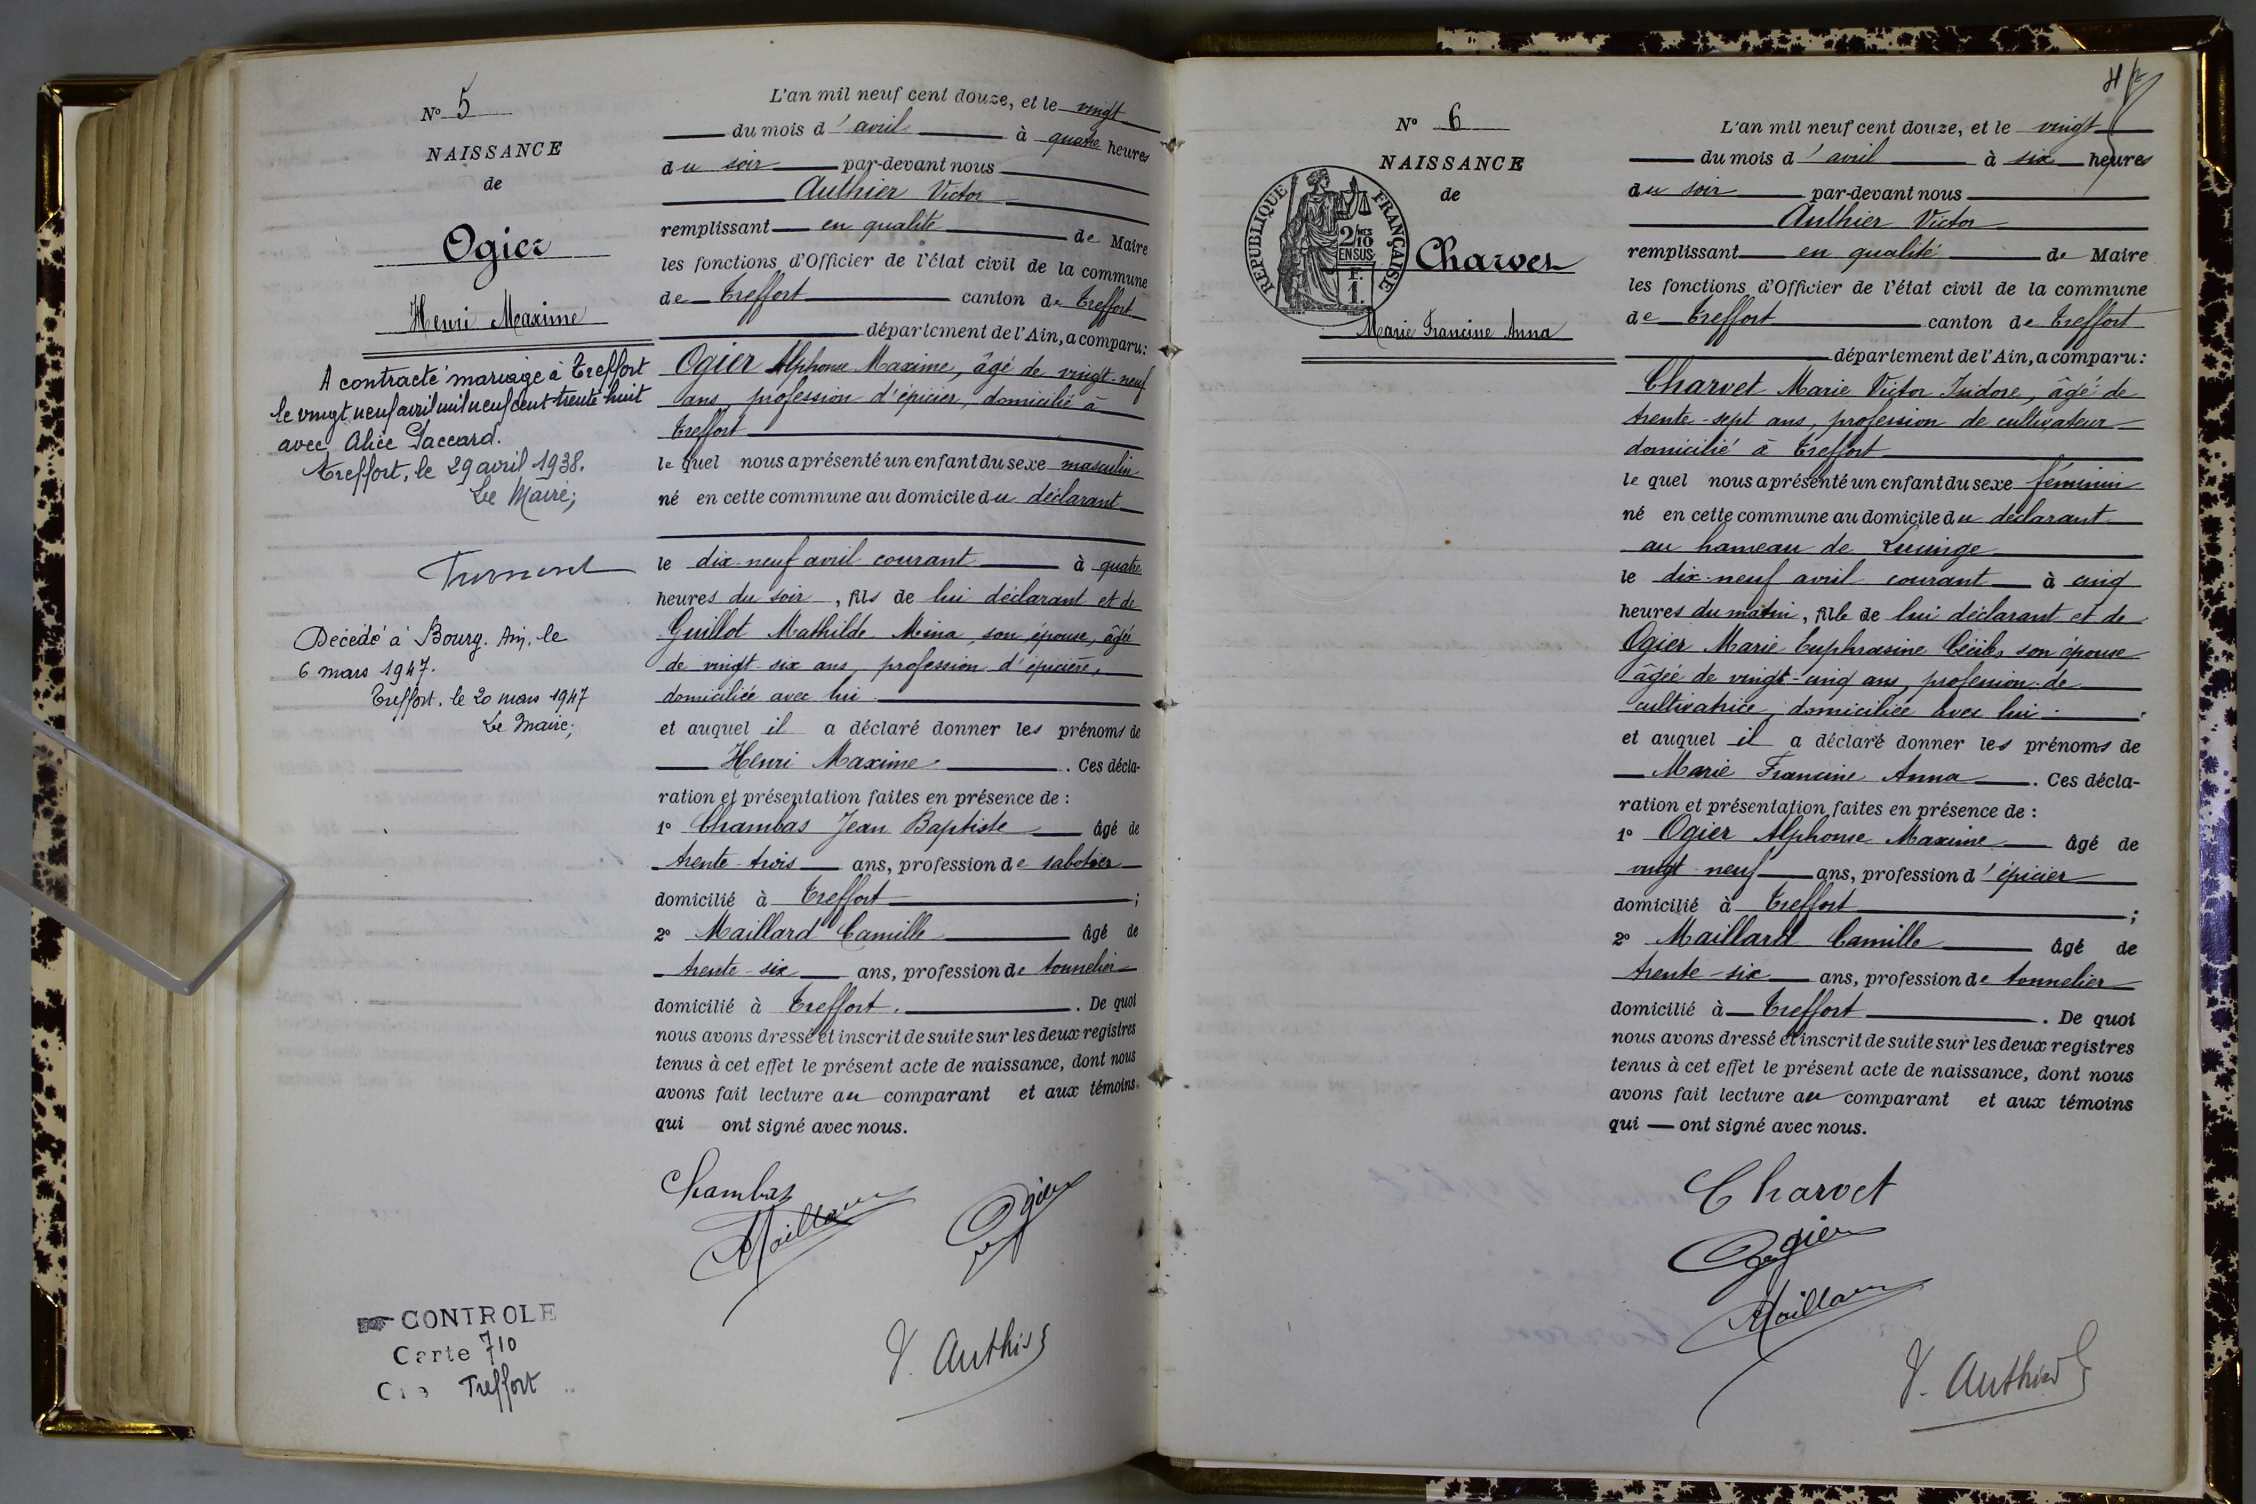 N° 5
NAISSANCE
de
Ogier
Henri Maxime
A contracté mariage à Treffort
le vingt neuf avril mil neuf cent trente huit
avec Alice Paccard.
Treffort, le 29 avril 1938.
Le Maire;
Décédé à Bourg. Ain, le
6 mars 1947.
Treffort, le 20 mars 1947
Le Maire;
CONTROLE
Carte 710
Treffort
L'an mil neuf cent douze, et le vingt
du mois d'avril à quatre heures
du soir par-devant nous
Authier Victor
remplissant en qualité de Maire
les fonctions d'Officier de l'état civil de la commune
de Treffort canton de Treffort
département de l'Ain, a comparu:
Ogier Alphonse Maxime, âgé de vingt-neuf
ans, profession d'épicier, domicilié à
Treffort
le quel nous a présenté un enfant du sexe masculin
né en cette commune au domicile du déclarant
le dix-neuf avril courant à quatre
heures du soir, fils de lui déclarant et de
Guillot Mathilde Mina, son épouse, âgée
de vingt-six ans, profession d'épicière,
domiciliée avec lui
et auquel il a déclaré donner les prénoms de
Henri Maxime. Ces décla-
ration et présentation faites en présence de :
1° Chambas Jean Baptiste âgé de
trente-trois ans, profession de sabotier
domicilié à Treffort ;
2° Maillard Camille âgé de
trente-six ans, profession de tonnelier
domicilié à Treffort. De quoi
nous avons dressé et inscrit de suite sur les deux registres
tenus à cet effet le présent acte de naissance, dont nous
avons fait lecture au comparant et aux témoins
qui ont signé avec nous.
Chambas
Maillard
Ogier
V. Authier
N° 6
NAISSANCE
de
REPUBLIQUE FRANÇAISE
2/10 MES
EN SUS
F.
1.
Charvet
Marie Francine Anna
L'an mil neuf cent douze, et le vingt
du mois d'avril à six heures
du soir par-devant nous
Authier Victor
remplissant en qualité de Maire
les fonctions d'Officier de l'état civil de la commune
de Treffort canton de Treffort
département de l'Ain, a comparu:
Charvet Marie Victor Isidore, âgé de
trente-sept ans, profession de cultivateur
domicilié à Treffort
le quel nous a présenté un enfant du sexe féminin
né en cette commune au domicile du déclarant
au hameau de Lucinge
le dix-neuf avril courant à cinq
heures du matin, fille de lui déclarant et de
Ogier Marie Euphrasine Cécile, son épouse
âgée de vingt-cinq ans, profession de
cultivatrice, domiciliée avec lui
et auquel il a déclaré donner les prénoms de
Marie Francine Anna. Ces décla-
ration et présentation faites en présence de :
1° Ogier Alphonse Maxime âgé de
vingt-neuf ans, profession d'épicier
domicilié à Treffort ;
2° Maillard Camille âgé de
trente-six ans, profession de tonnelier
domicilié à Treffort. De quoi
nous avons dressé et inscrit de suite sur les deux registres
tenus à cet effet le présent acte de naissance, dont nous
avons fait lecture au comparant et aux témoins
qui ont signé avec nous.
Charvet
Ogier
Maillard
V. Authier